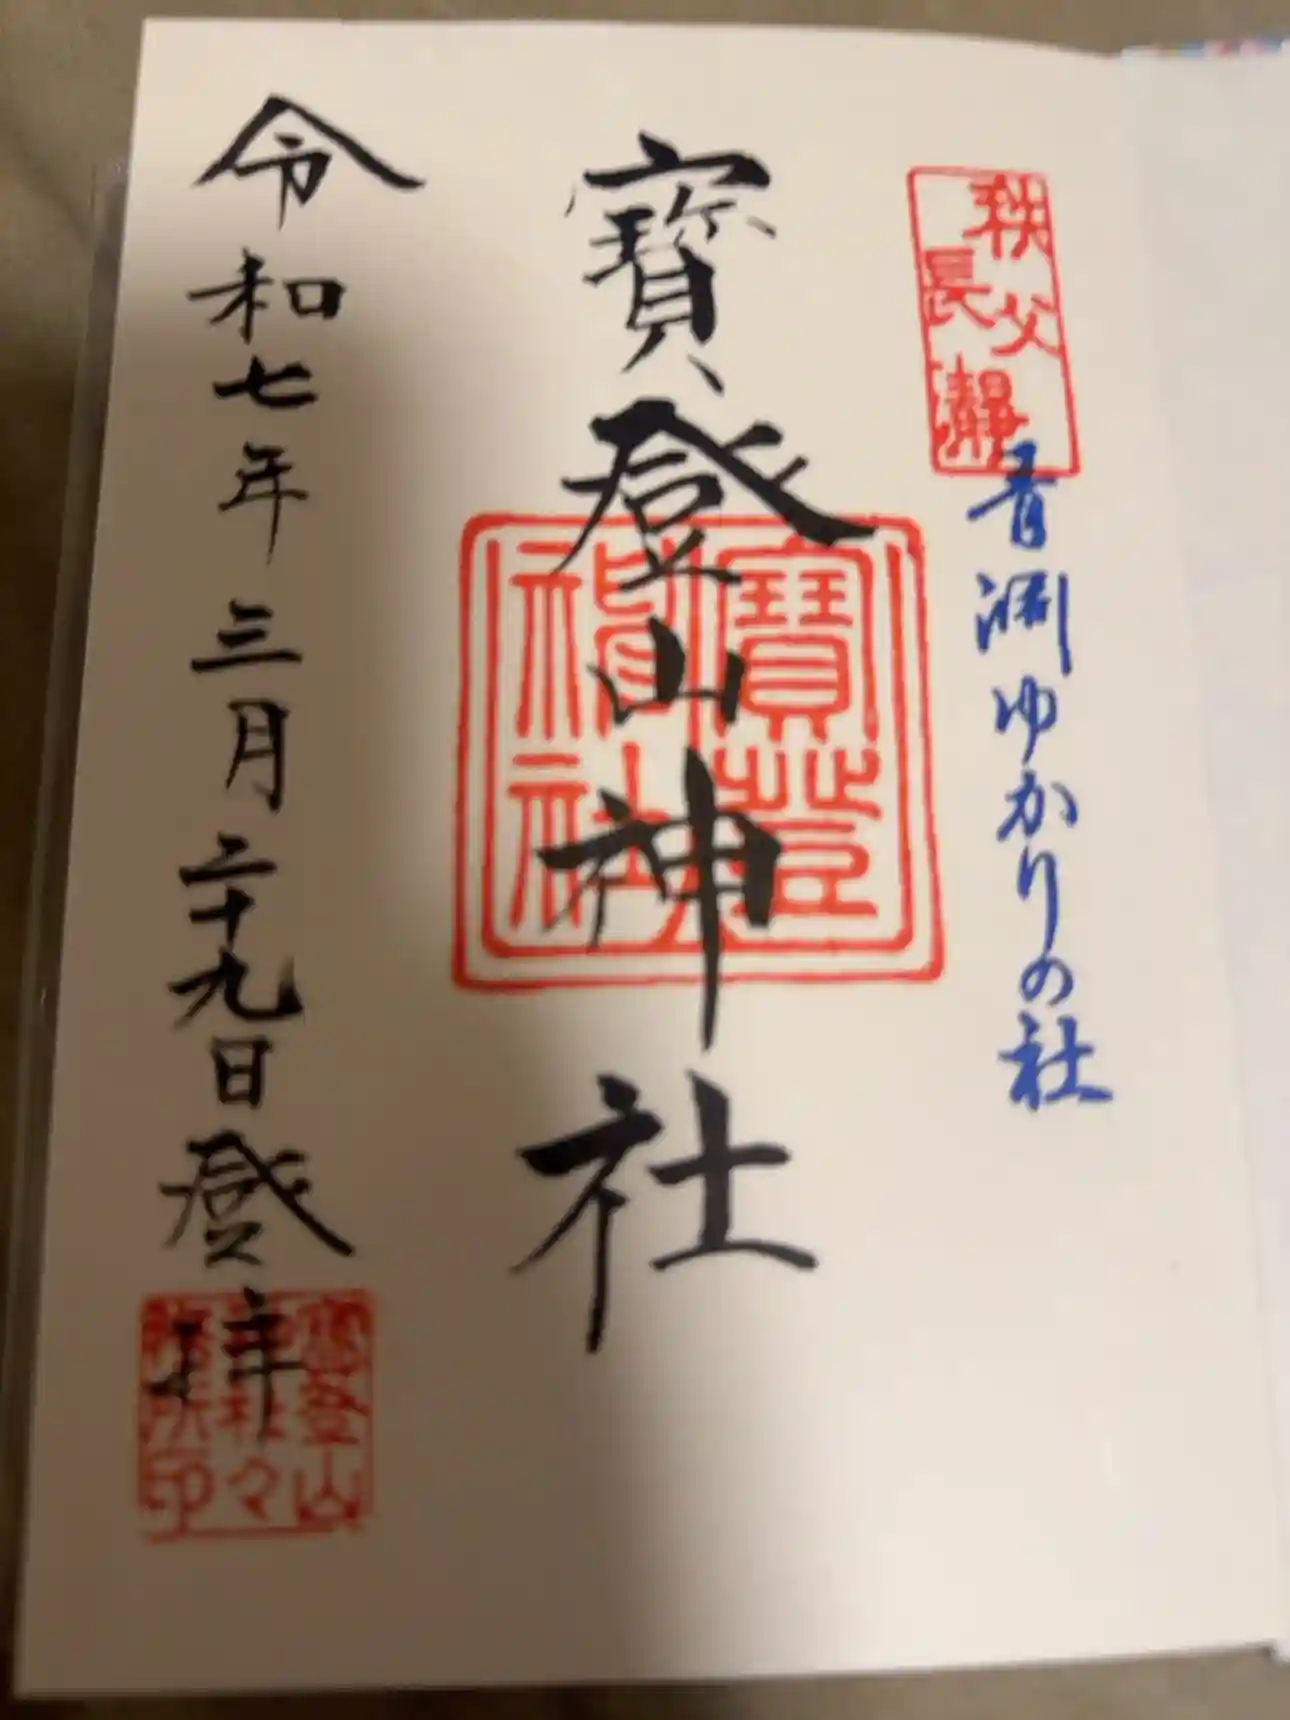 秩父
長瀞
青淵ゆかりの社
寳登山神社
寳登
山神
社
令和七年三月二十九日登拝
寳登山
神社々
務所印